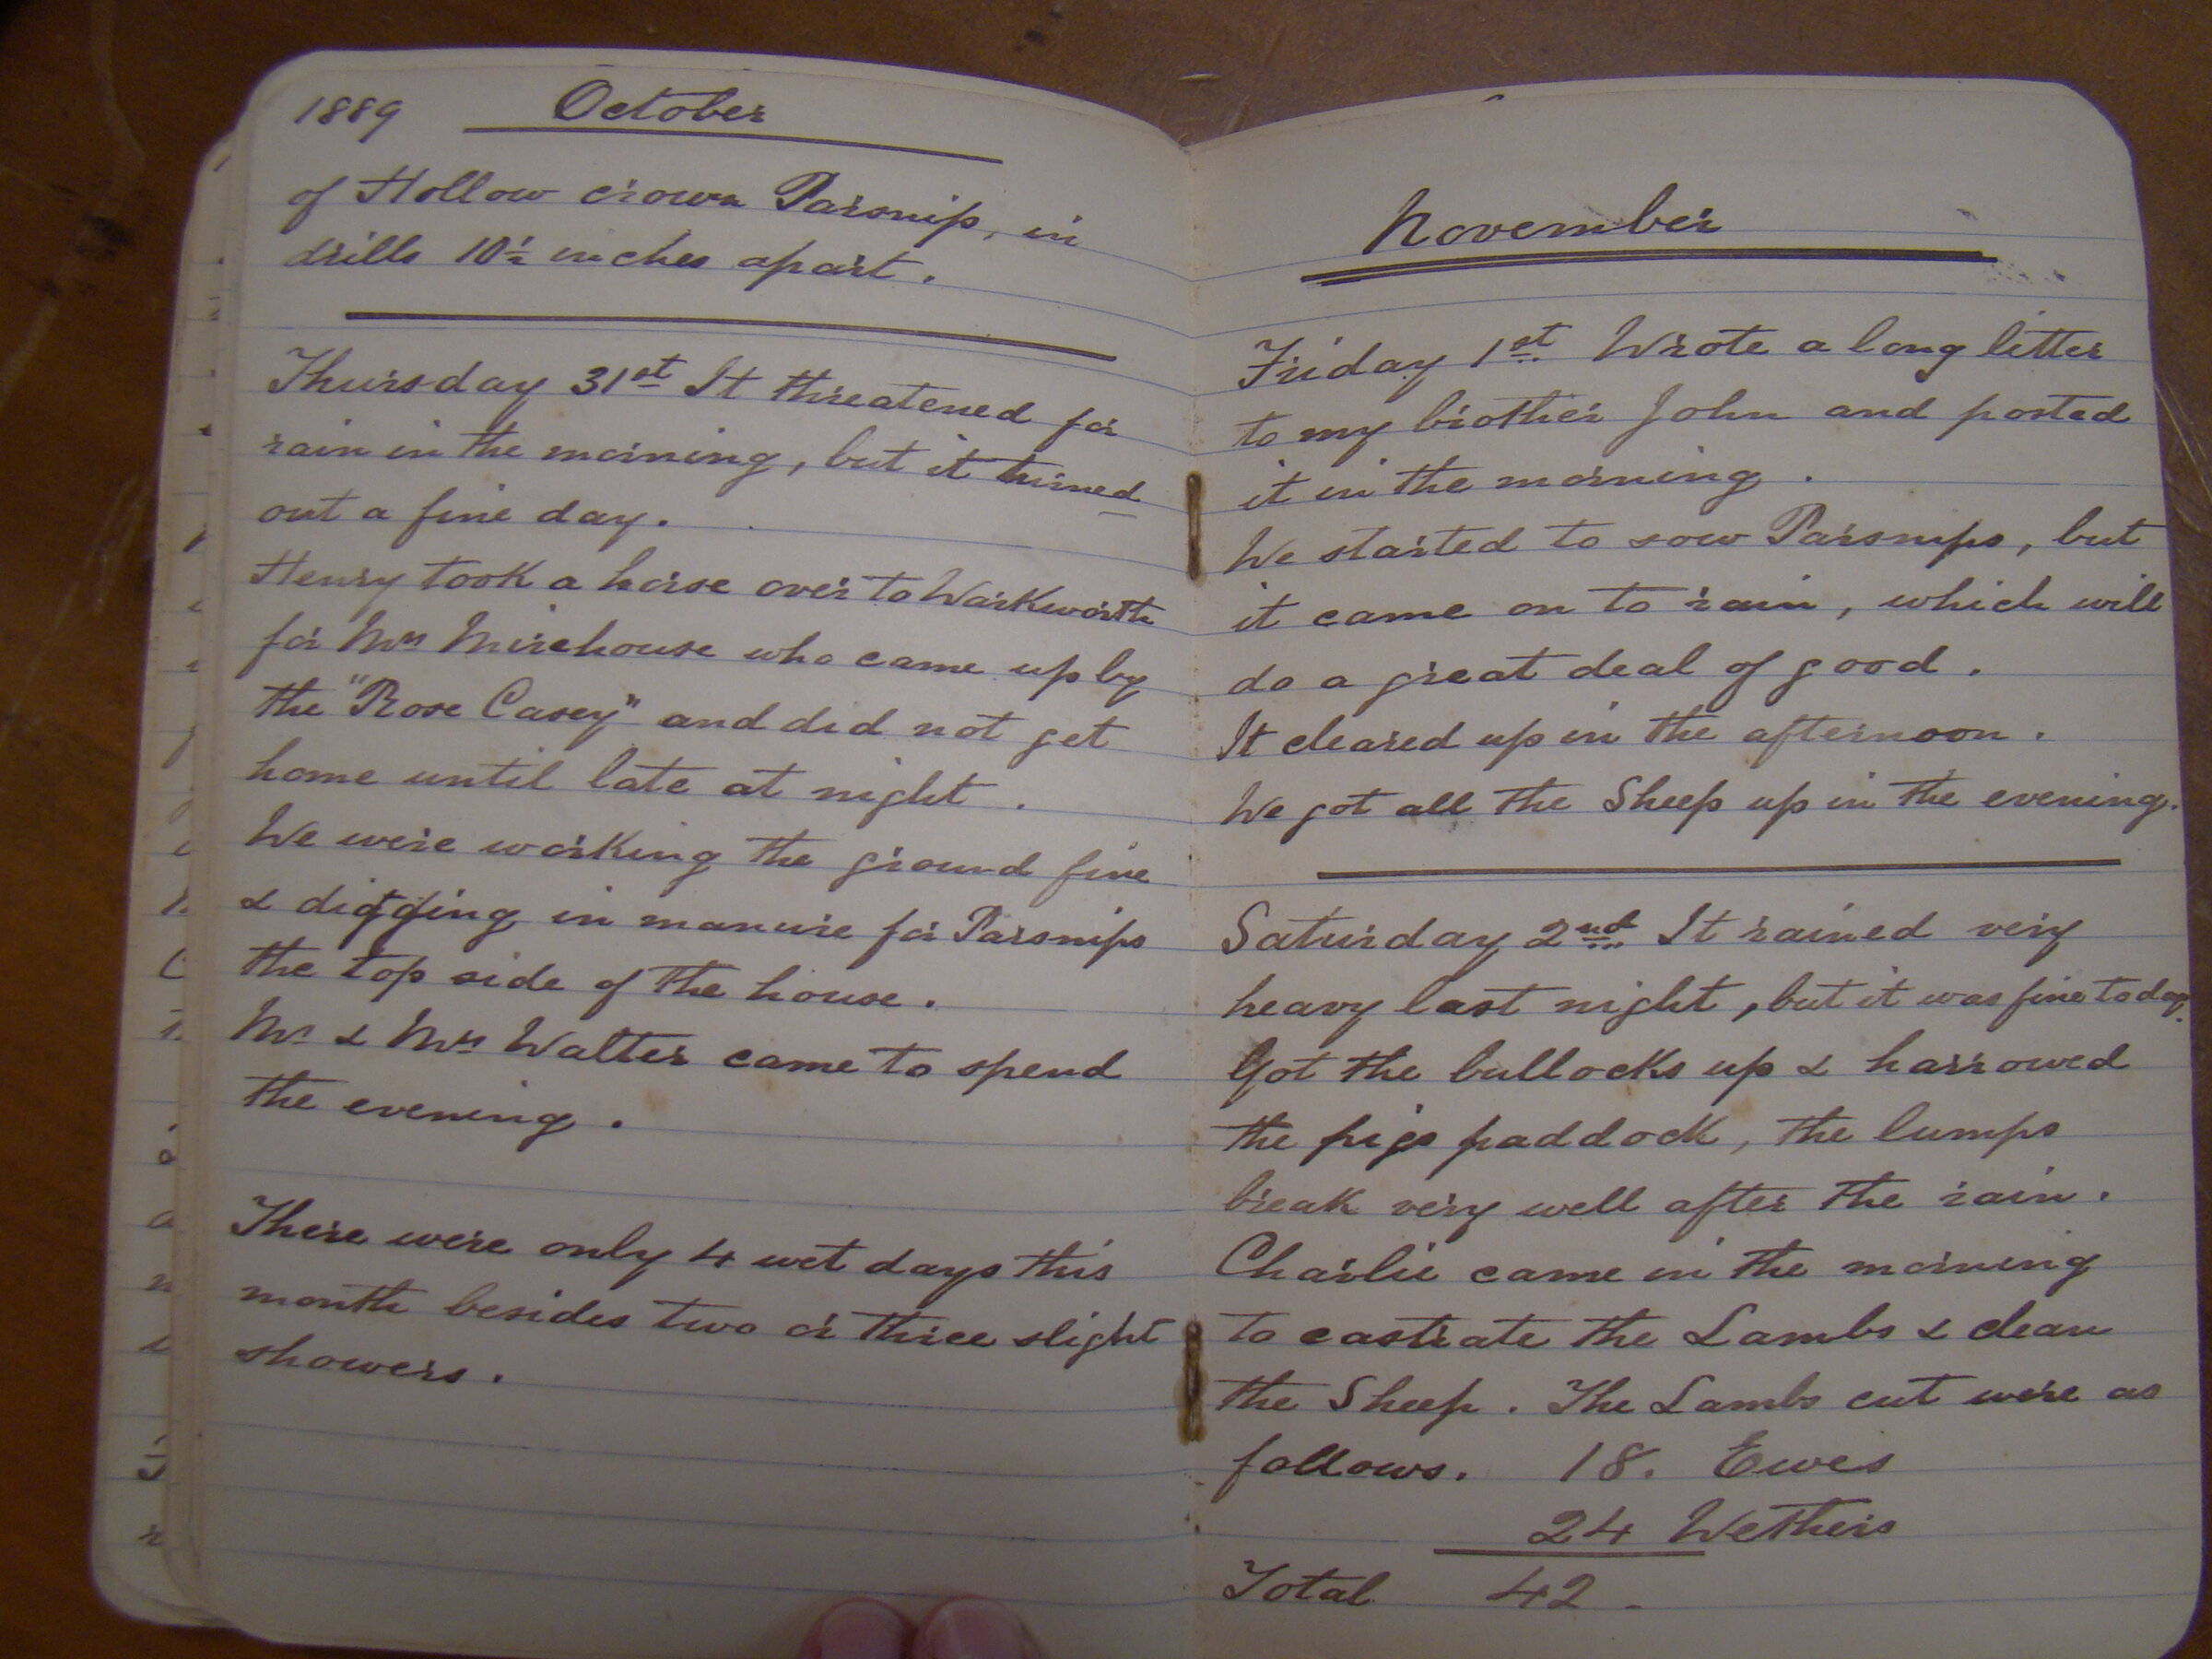 1889 October
of Hollow crown Parsnip, in
drills 10½ inches apart.
Thursday 31st It threatened for
rain in the morning, but it turned
out a fine day.
Henry took a horse over to Warkworth
for Mrs Mirehouse who came up by
the "Rose Casey" and did not get
home until late at night.
We were working the ground fine
& digging in manure for Parsnips
the top side of the house.
Mr & Mrs Walter came to spend
the evening.
There were only 4 wet days this
month besides two or three slight
showers.
November
Friday 1st. Wrote a long letter
to my brother John and posted
it in the morning.
We started to sow Parsnips, but
it came on to rain, which will
do a great deal of good.
It cleared up in the afternoon.
We got all the Sheep up in the evening.
Saturday 2nd. It rained very
heavy last night, but it was fine today.
Got the bullocks up & harrowed
the pigs paddock, the lumps
break very well after the rain.
Charlie came in the morning
to castrate the Lambs & clean
the Sheep. The Lambs cut were as
follows. 18. Ewes
24 Wethers
Total 42.